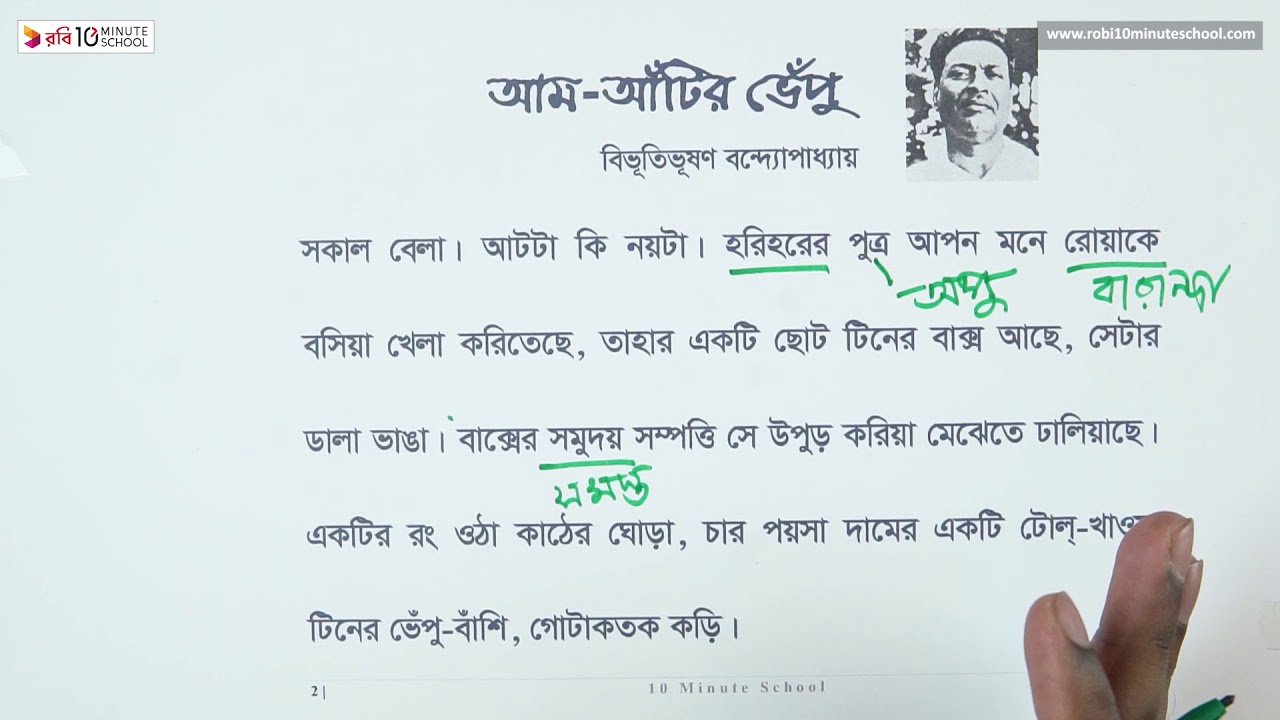 রবি 10 MINUTE SCHOOL
www.robi10minuteschool.com
আম-আঁটির ভেঁপু
বিভূতিভূষণ বন্দ্যোপাধ্যায়
সকাল বেলা। আটটা কি নয়টা। হরিহরের পুত্র আপন মনে রোয়াকে
অপু বারান্দা
বসিয়া খেলা করিতেছে, তাহার একটি ছোট টিনের বাক্স আছে, সেটার
ডালা ভাঙা। বাক্সের সমুদয় সম্পত্তি সে উপুড় করিয়া মেঝেতে ঢালিয়াছে।
সমস্ত
একটির রং ওঠা কাঠের ঘোড়া, চার পয়সা দামের একটি টোল্-
টিনের ভেঁপু-বাঁশি, গোটাকতক কড়ি।
2|
10 Minute School